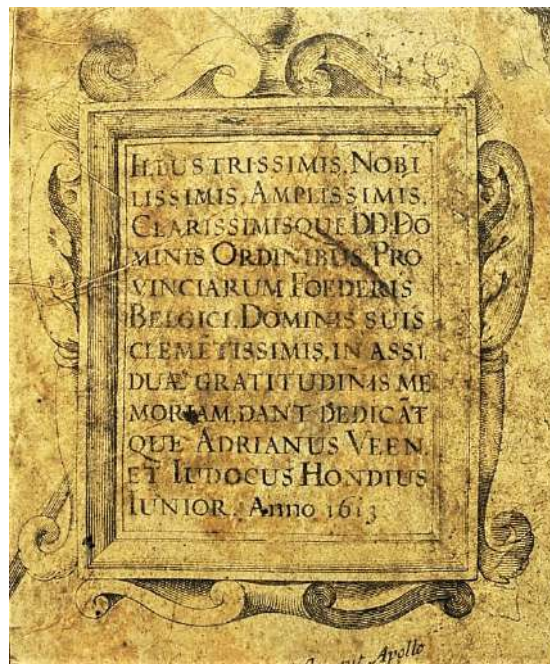 ILLUSTRISSIMIS, NOBI
LISSIMIS, AMPLISSIMIS,
CLARISSIMISQUE DD. DÕ
MINIS ORDINIBUS, PRO
VINCIARUM FOEDERIS
BELGICI, DOMINIS SUIS
CLEMẼTISSIMIS, IN ASSI
DUÆ GRATITUDINIS ME
MORIAM, DANT DEDICÃT
QUE ADRIANUS VEEN,
ET IUDOCUS HONDIUS
IUNIOR. Anno 1613
Apollo